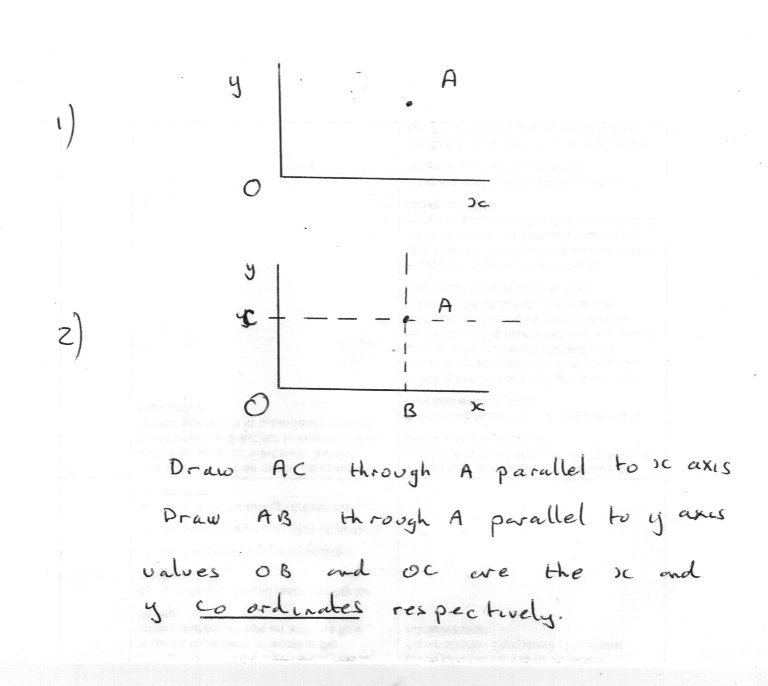 1)
y
A
O
x
2)
y
C
A
O
B
x
Draw AC through A parallel to x axis
Draw AB through A parallel to y axis
values OB and OC are the x and
y co ordinates respectively.